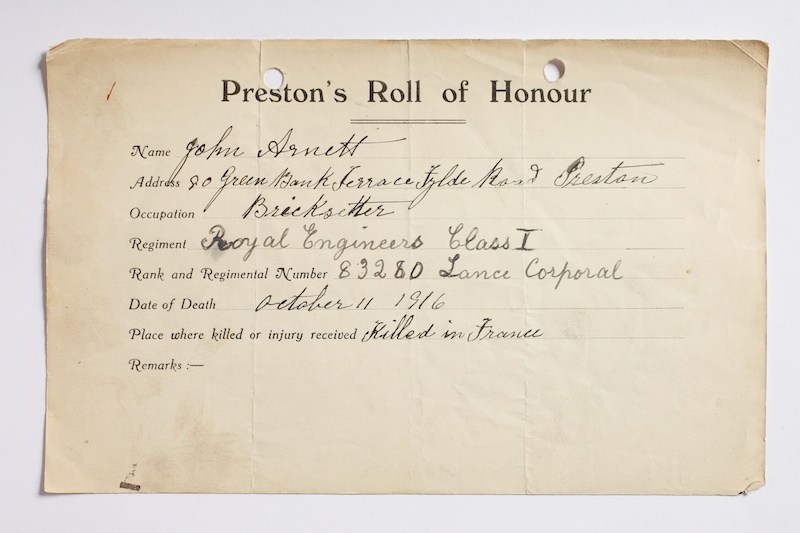 Preston's Roll of Honour
Name John Arnett
Address 80 Green Bank Terrace Fylde Road Preston
Occupation Bricksetter
Regiment Royal Engineers Class I
Rank and Regimental Number 83280 Lance Corporal
Date of Death October 11 1916
Place where killed or injury received Killed in France
Remarks :—